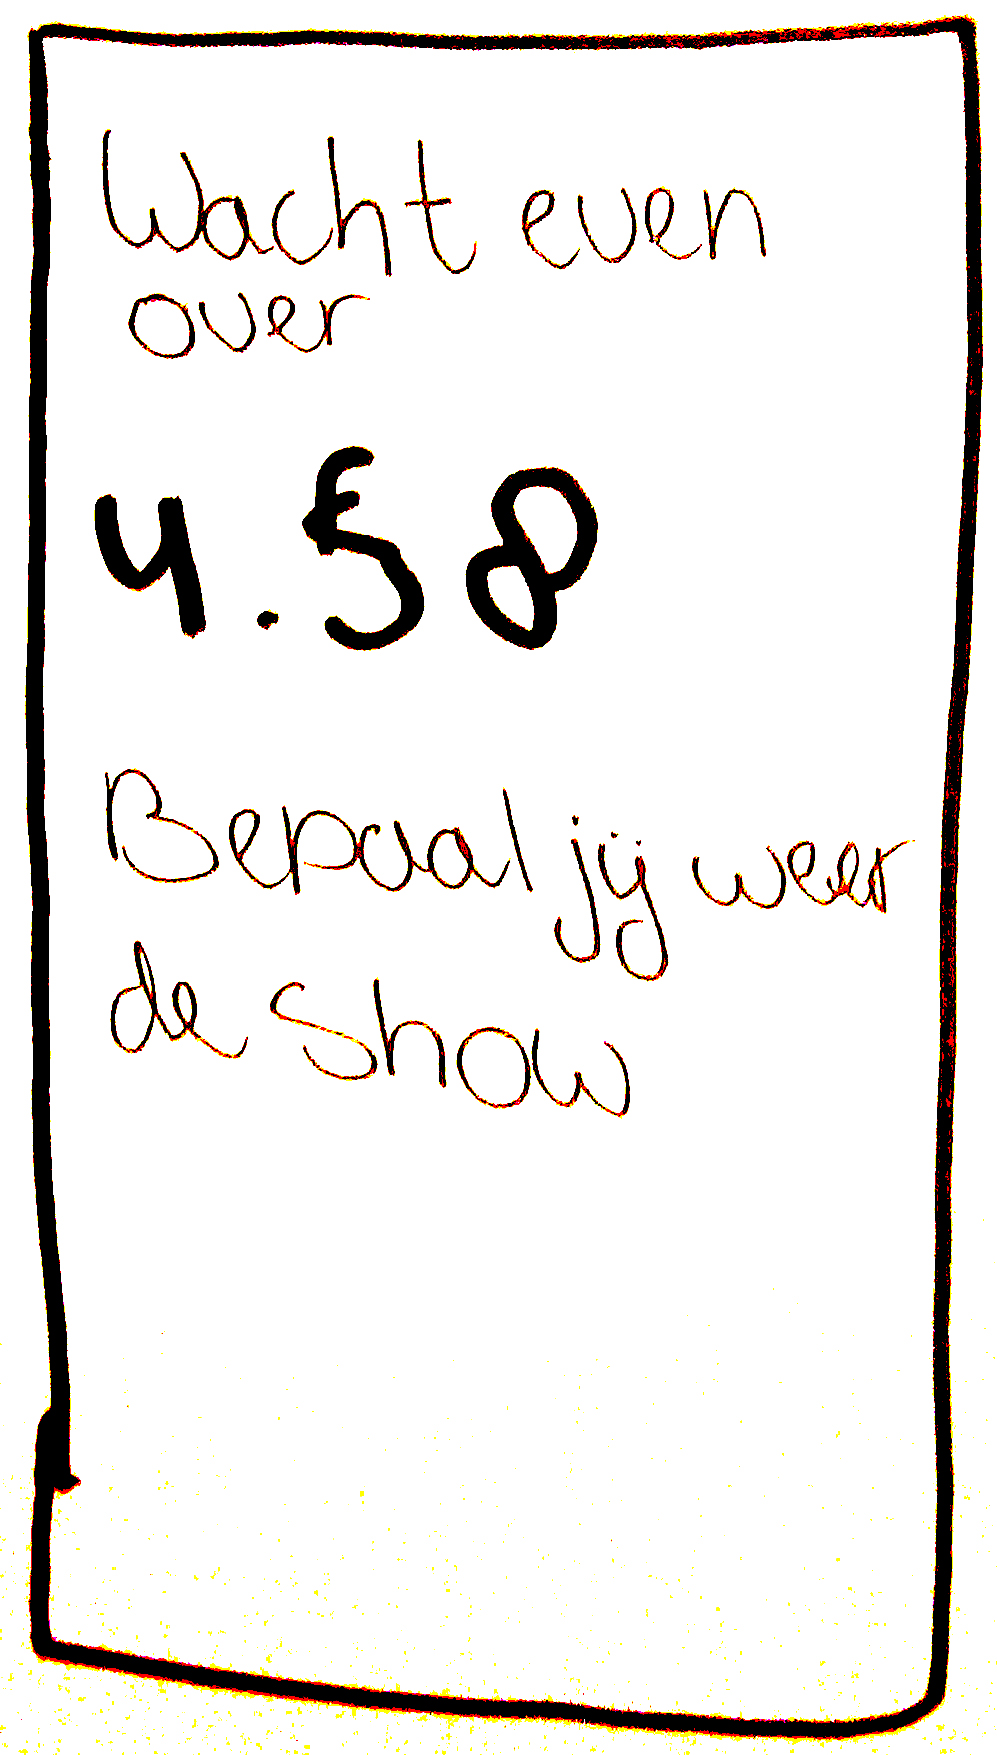 Wacht even
over
4.58
Bepaal jij weer
de show